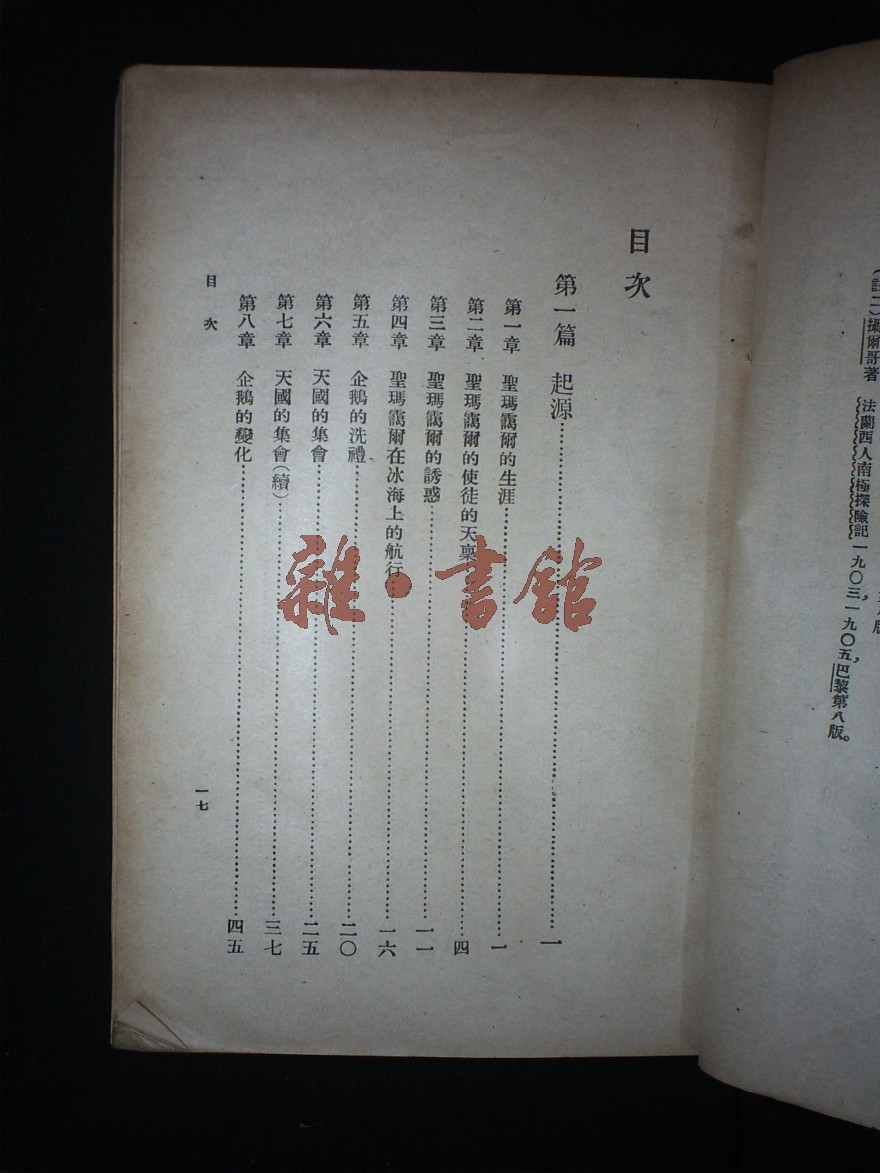 （註二）攝爾哥著 法蘭西人南極探險記一九〇三一九〇五，巴黎第八版。
目次
第一篇 起源……一
第一章 聖瑪靄爾的生涯……一
第二章 聖瑪靄爾的使徒的天稟……四
第三章 聖瑪靄爾的誘惑……一一
第四章 聖瑪靄爾在冰海上的航行……一六
第五章 企鵝的洗禮……二〇
第六章 天國的集會……二五
第七章 天國的集會（續）……三七
第八章 企鵝的變化……四五
目次
一七
雜·書館